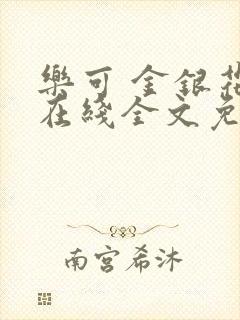 樂可 金銀花
在綫全文免
南宮希沐